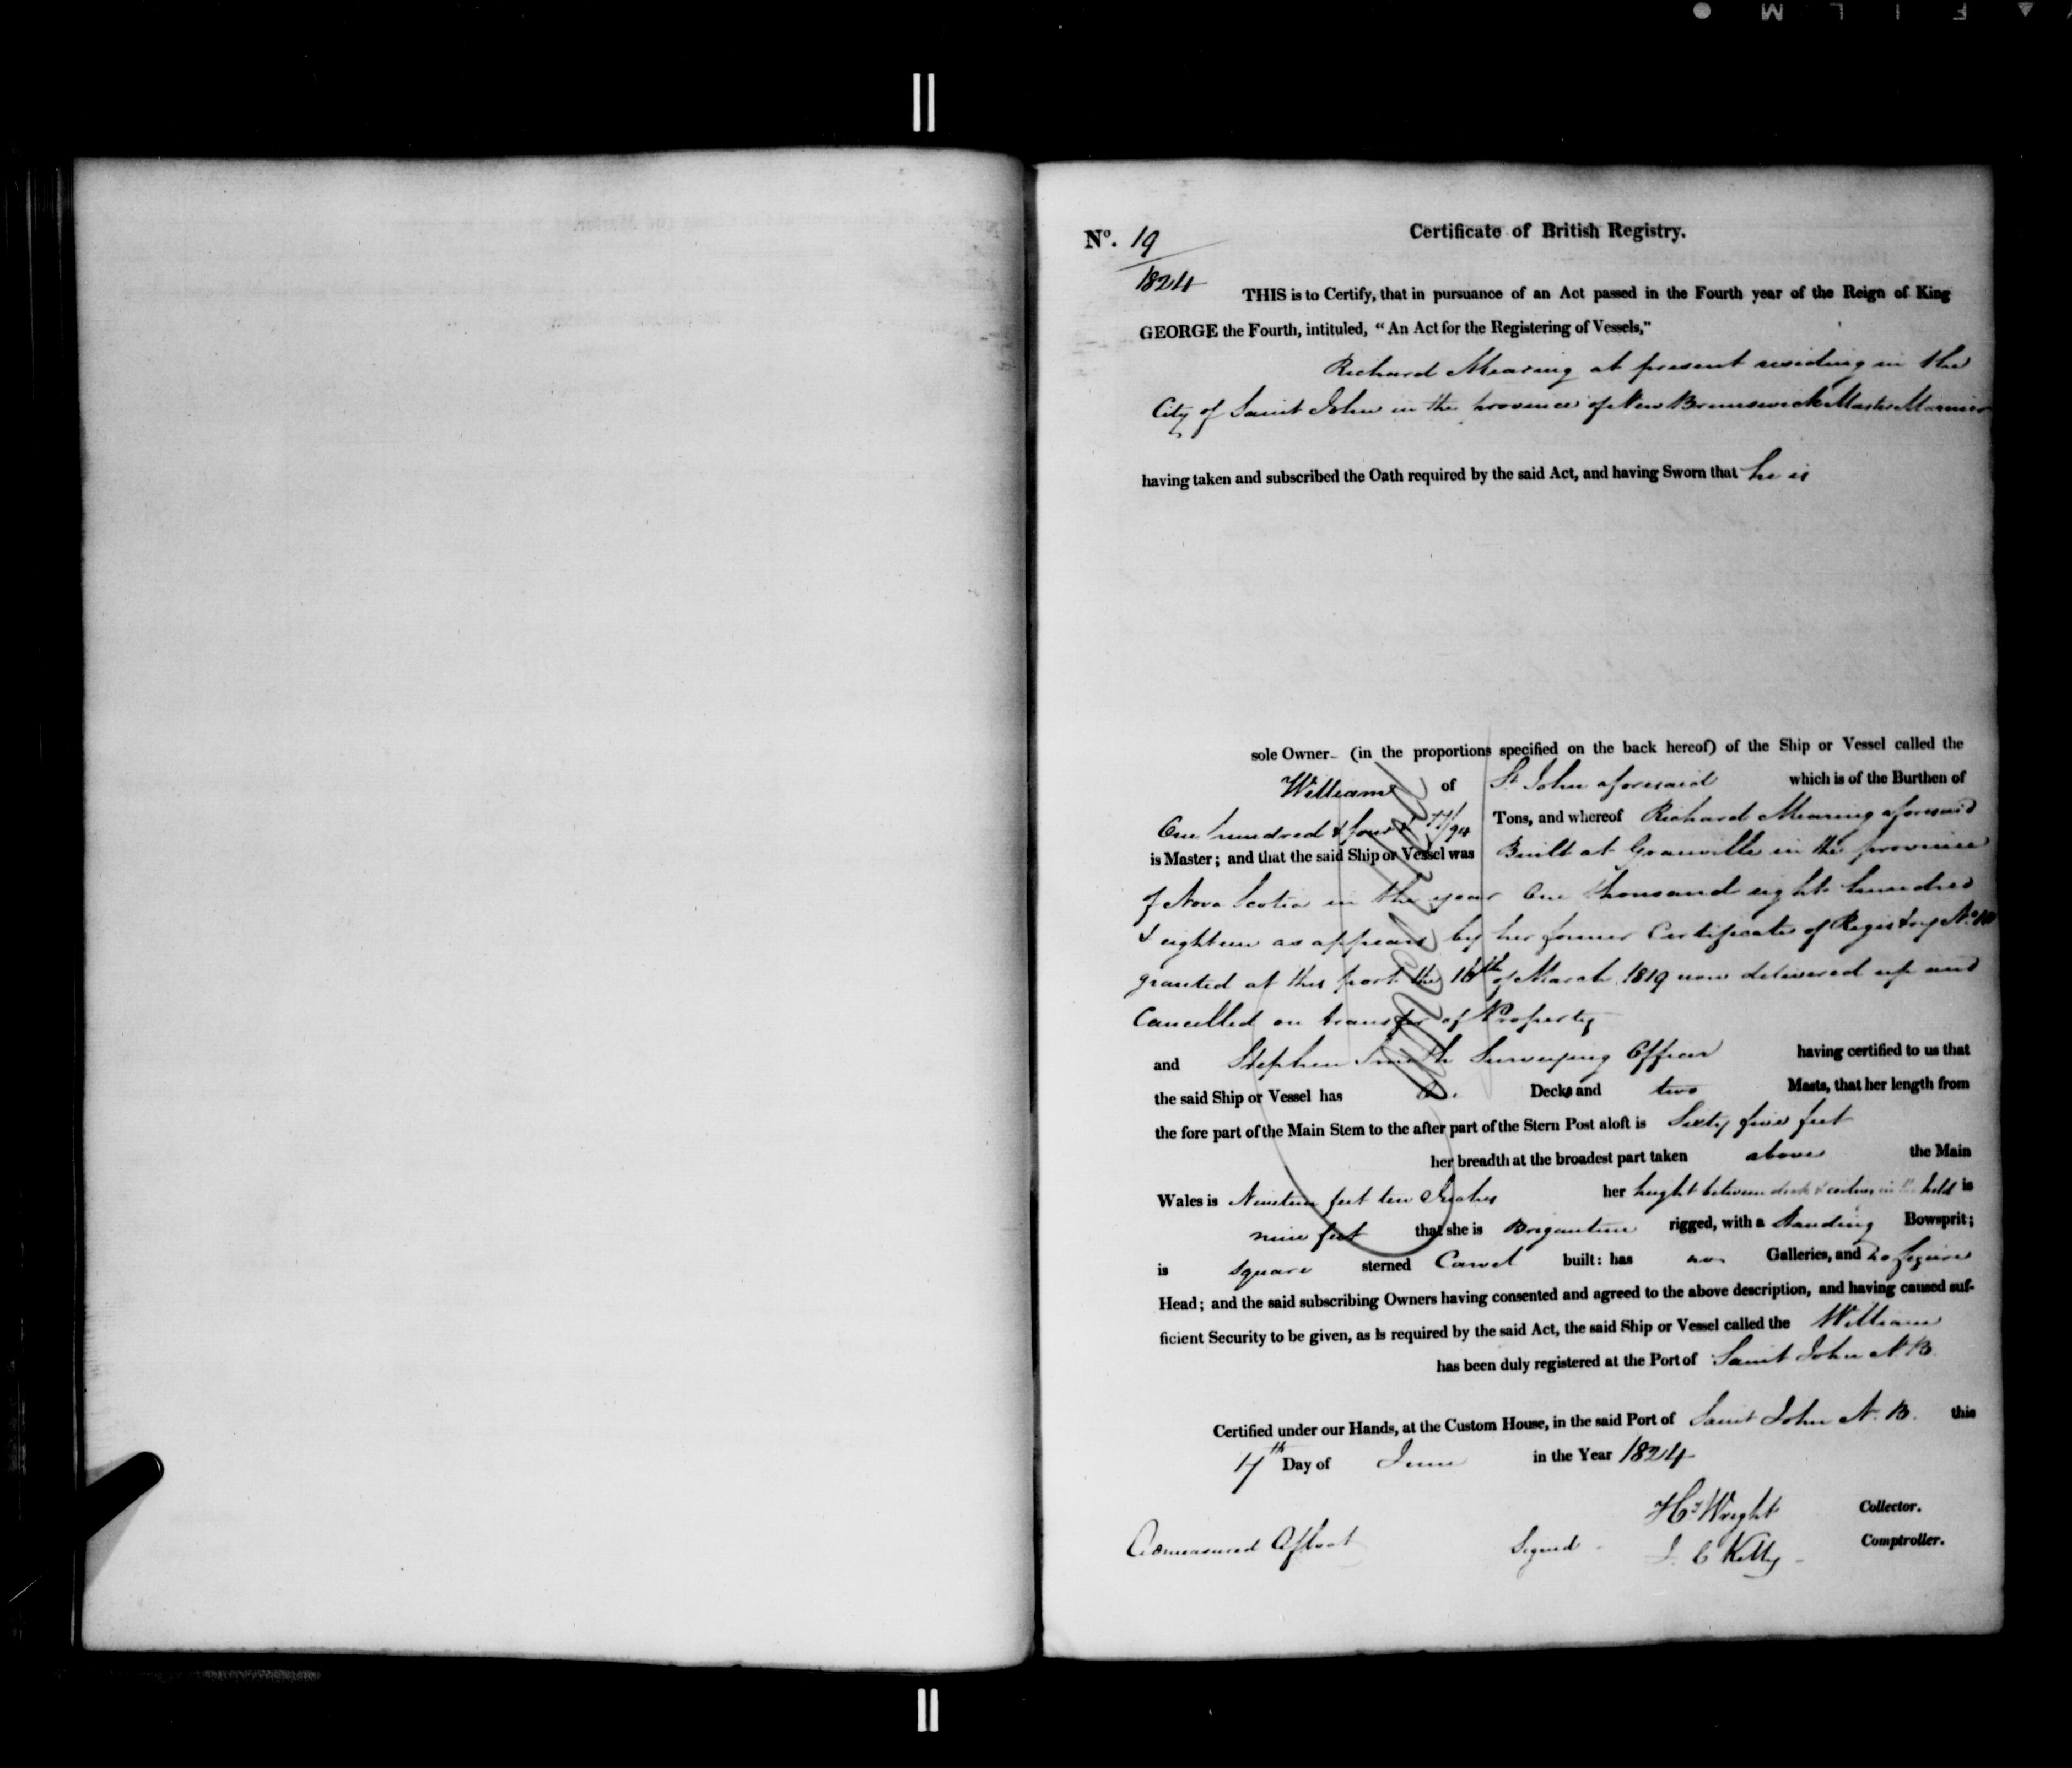 FILM
No. 19
1824
Certificate of British Registry.
THIS is to Certify, that in pursuance of an Act passed in the Fourth year of the Reign of King
GEORGE the Fourth, intituled, "An Act for the Registering of Vessels,"
Richard Mearing at present residing in the
City of Saint John in the province of New Brunswick Master Mariner
having taken and subscribed the Oath required by the said Act, and having Sworn that he is
sole Owner (in the proportions specified on the back hereof) of the Ship or Vessel called the
William of St. John aforesaid which is of the Burthen of
One hundred & four & /94 Tons, and whereof Richard Mearing aforesaid
is Master; and that the said Ship or Vessel was Built at Granville in the province
of Nova Scotia in the year One thousand eight hundred
& eighteen as appears by her former Certificate of Registry No.
granted at this port the of March 1819 now delivered up and
Cancelled on transfer of Property
and Stephen Smith Surveying Officer having certified to us that
the said Ship or Vessel has Decks and two Masts, that her length from
the fore part of the Main Stem to the after part of the Stern Post aloft is Sixty five feet
her breadth at the broadest part taken above the Main
Wales is Nineteen feet ten Inches her height between deck & ceiling in the hold is
nine feet that she is Brigantine rigged, with a Standing Bowsprit;
is square sterned Carvel built: has no Galleries, and no figure
Head; and the said subscribing Owners having consented and agreed to the above description, and having caused suf-
ficient Security to be given, as is required by the said Act, the said Ship or Vessel called the William
has been duly registered at the Port of Saint John N.B.
Certified under our Hands, at the Custom House, in the said Port of Saint John N.B. this
17th Day of June in the Year 1824
Hy Wright Collector.
Admeasured Afloat Signed J. C Kelly Comptroller.
Cancelled